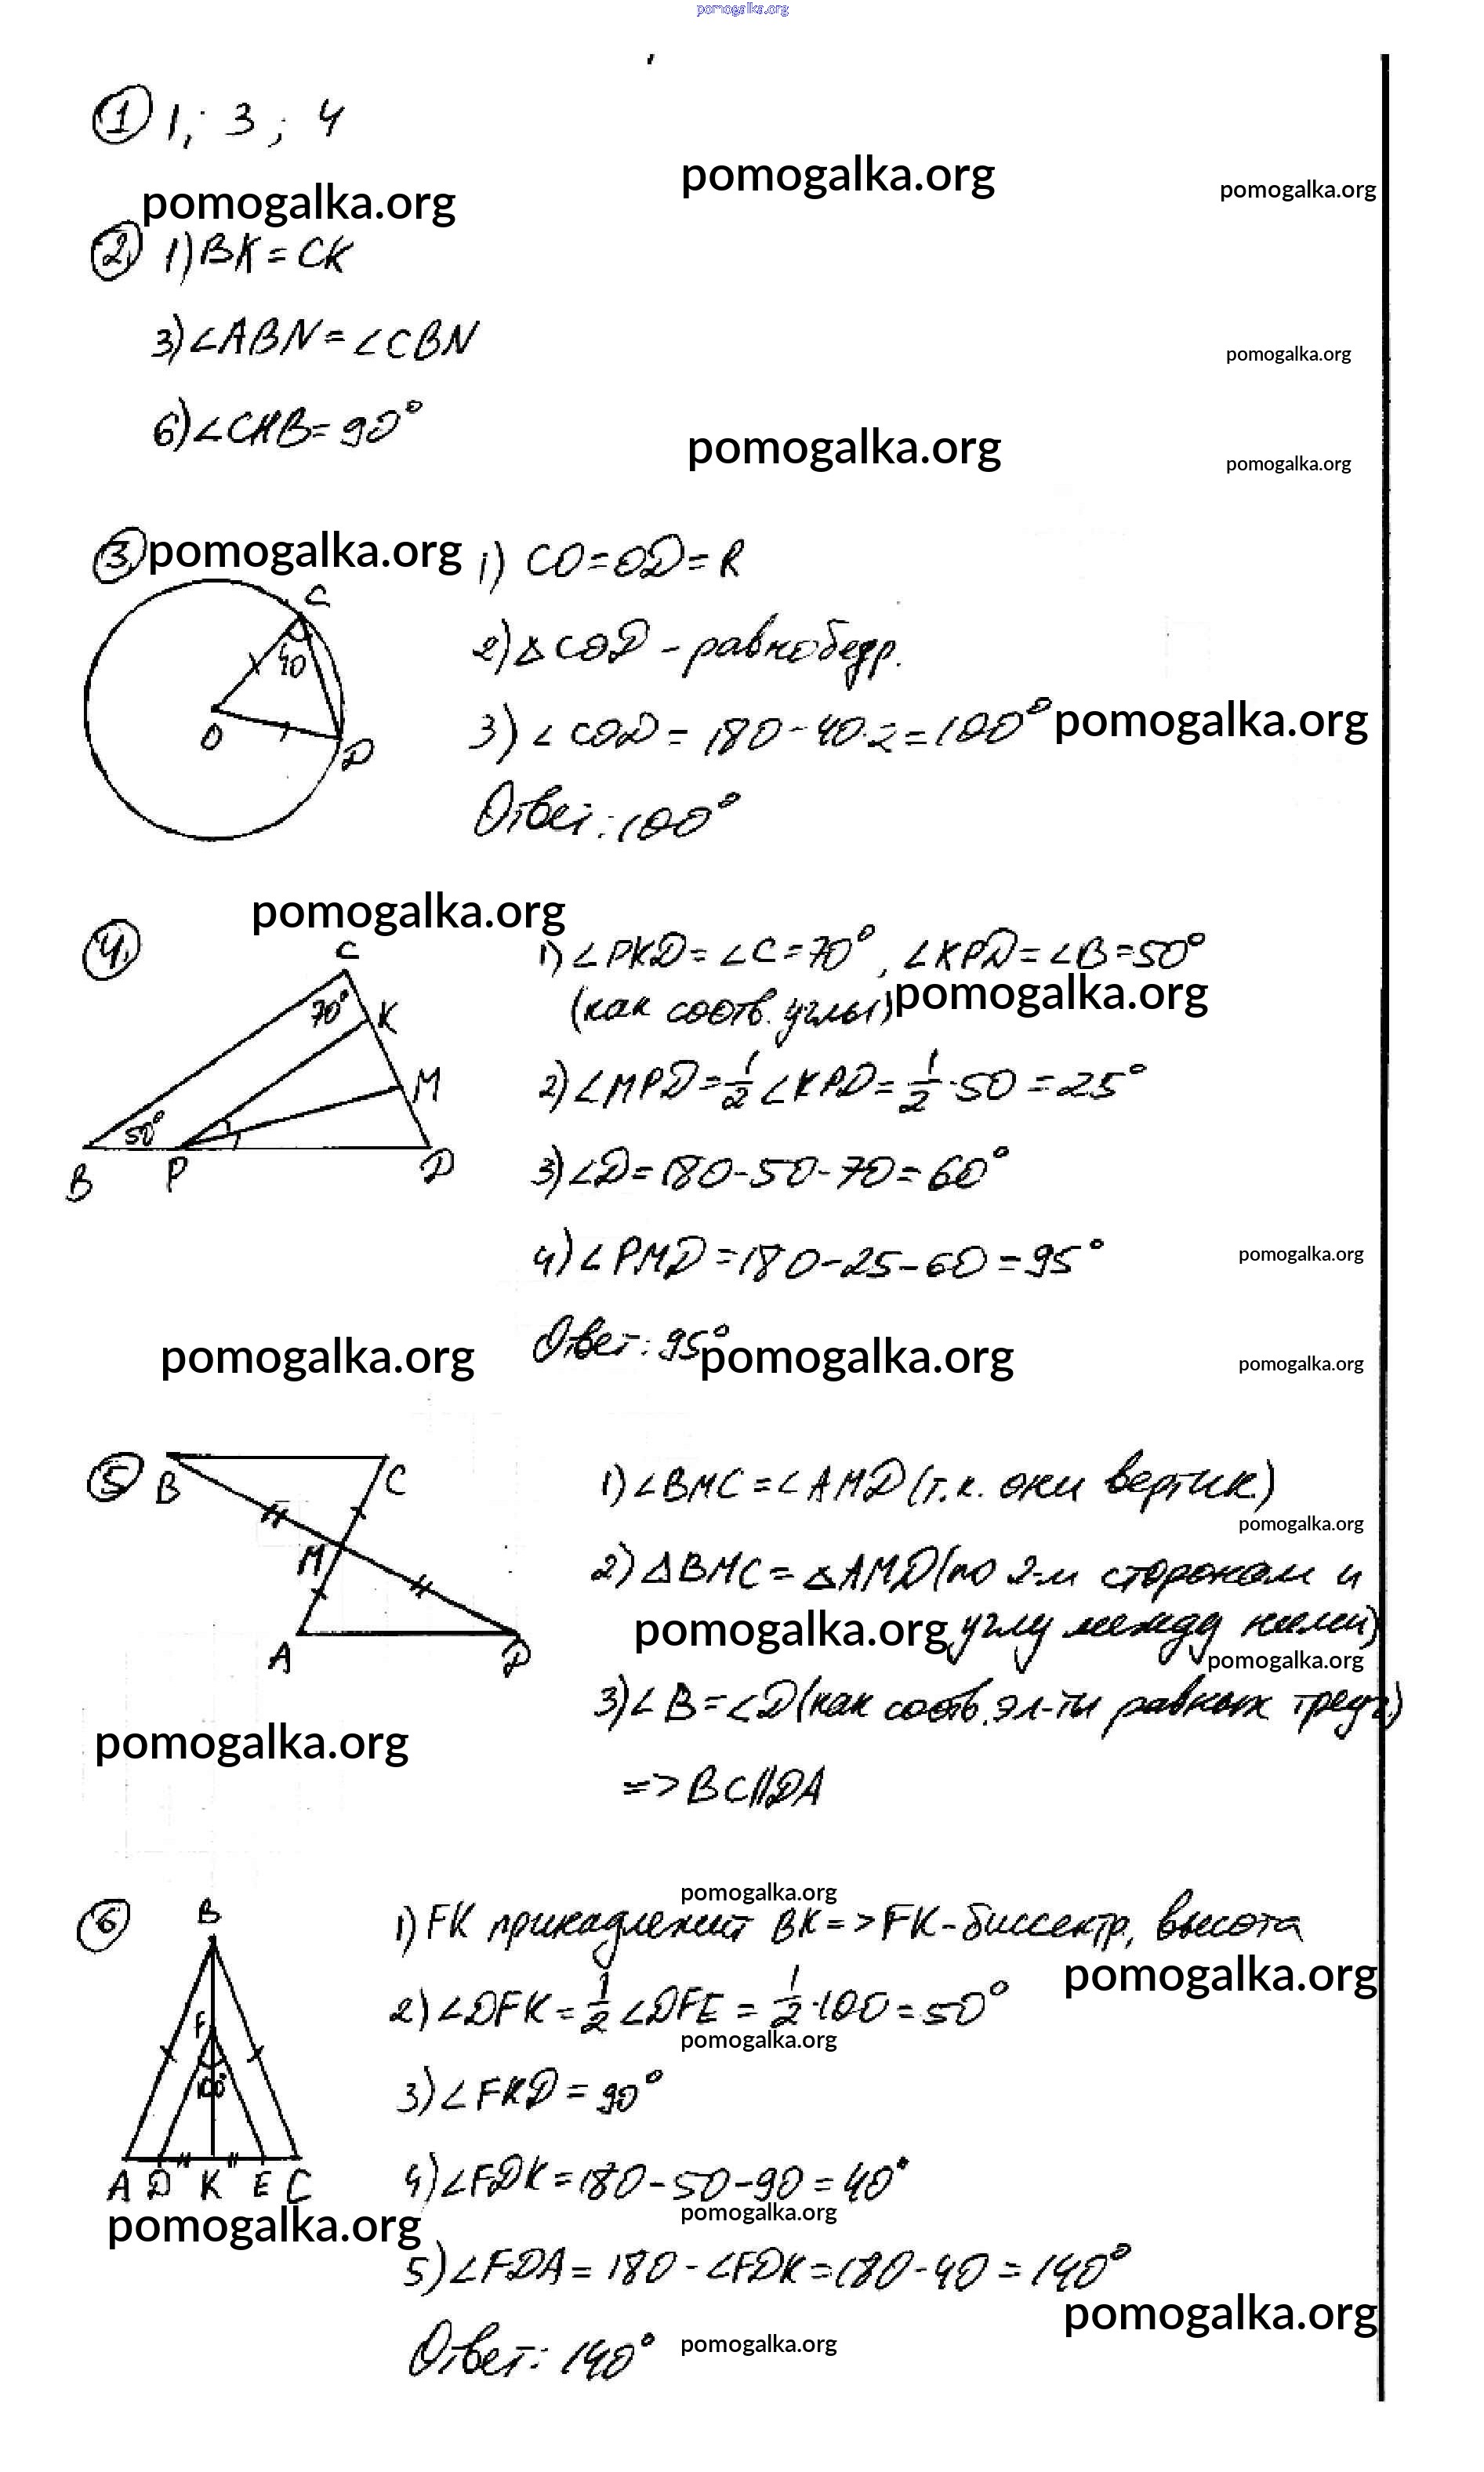 pomogalka.org
1 1; 3; 4
pomogalka.org pomogalka.org pomogalka.org
2 1) BK = CK
3) ∠ABN = ∠CBN
pomogalka.org
6) ∠CHB = 90°
pomogalka.org pomogalka.org
3 pomogalka.org 1) CO = OD = R
C
40
O
D
2) △COD - равнобедр.
3) ∠COD = 180 - 40·2 = 100° pomogalka.org
Ответ: 100°
pomogalka.org
4.
C
70°
K
M
50°
B P D
1) ∠PKD = ∠C = 70°, ∠KPD = ∠B = 50°
(как соотв. углы) pomogalka.org
2) ∠MPD = 1/2 ∠KPD = 1/2 · 50 = 25°
3) ∠D = 180 - 50 - 70 = 60°
4) ∠PMD = 180 - 25 - 60 = 95°
pomogalka.org
Ответ: 95°
pomogalka.org pomogalka.org pomogalka.org
5
B C
M
A D
1) ∠BMC = ∠AMD (т.к. они вертик.)
pomogalka.org
2) △BMC = △AMD (по 2-м сторонам и
pomogalka.org углу между ними)
pomogalka.org
3) ∠B = ∠D (как соотв. эл-ты равных треуг.)
pomogalka.org
=> BC || DA
6
B
F
100°
A D K E C
pomogalka.org
1) FK принадлежит BK => FK - биссектр, высота
pomogalka.org
2) ∠DFK = 1/2 ∠DFE = 1/2 · 100 = 50°
pomogalka.org
3) ∠FKD = 90°
4) ∠FDK = 180 - 50 - 90 = 40°
pomogalka.org
pomogalka.org
5) ∠FDA = 180 - ∠FDK = 180 - 40 = 140°
pomogalka.org
Ответ: 140°
pomogalka.org